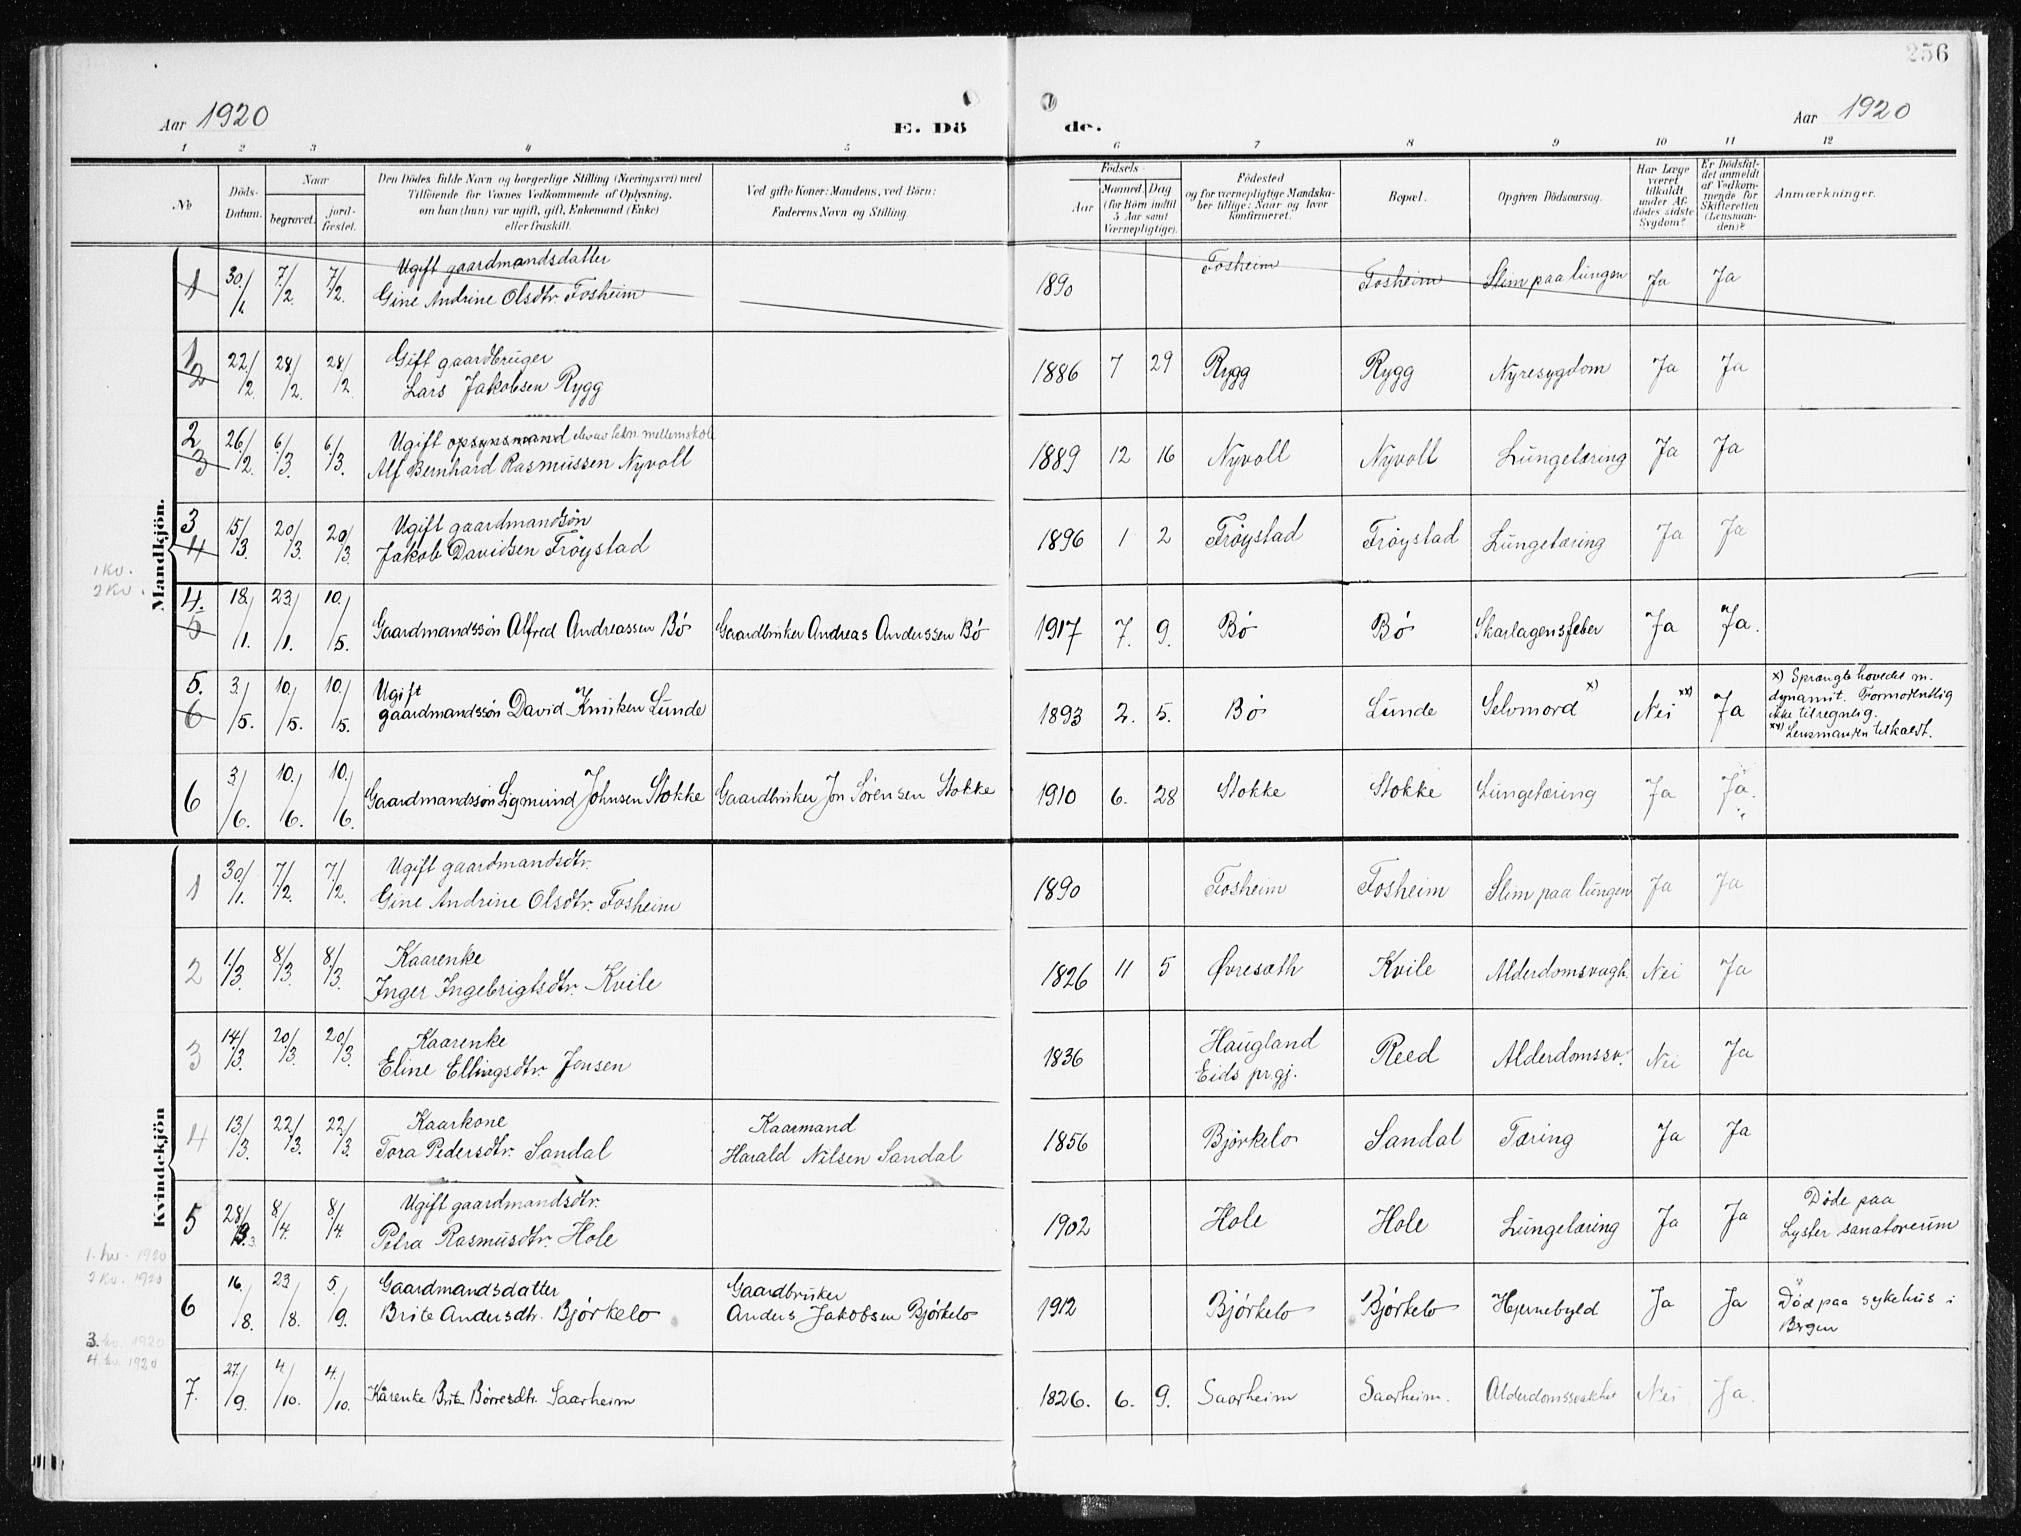 256
Aar 1920
E. Dö de.
Aar 1920
1 2 3 4 5 6 7 8 9 10 11 12
No
Döds-Datum.
Naar
begravet.
jord-fæstet.
Den Dödes fulde Navn og borgerlige Stilling (Næringsvei) med
Tilföiende for Voxnes Vedkommende af Oplysning,
om han (hun) var ugift, gift, Enkemand (Enke)
eller fraskilt.
Ved gifte Koner: Mandens, ved Börn:
Faderens Navn og Stilling.
Födsels-
Aar
Maaned. Dag
(for Börn indtil
5 Aar samt
Værnepligtige).
Födested
og for værnepligtige Mandska-
ber tillige: Naar og hvor
konfirmeret.
Bopæl.
Opgiven Dödsaarsag.
Har Læge
været
tilkaldt
under Af-
dödes sidste
Sygdom?
Er Dödsfal-
det anmeldt
af Vedkom-
mende for
Skifteretten
(Lensman-
den)?
Anmærkninger.
Mandkjön.
1 Kv.
2 Kv.
1 30/1 7/2 7/2. Ugift gaardmandsdatter
Gine Andrine Olsdtr. Fosheim 1890 Fosheim Fosheim Slim paa lungen Ja Ja
1 2 22/2. 28/2. 28/2. Gift gaardbruger
Lars Jakobsen Rygg 1886 7 29 Rygg Rygg Nyresygdom Ja Ja
2 3 26/2. 6/3. 6/3. Ugift opsynsmand elev av mellemskole
Alf Bernhard Rasmussen Nyvoll 1889 12 16 Nyvoll Nyvoll Lungetæring Ja Ja
3 4 15/3. 20/3. 20/3 Ugift gaardmandsøn
Jakob Davidsen Frøystad 1896 1 2 Frøystad Frøystad Lungetæring Ja Ja
4. 5 18./1. 23./1. 10./5. Gaardmandssøn Alfred Andreassen Bø Gaardbruker Andreas Anderssen Bø 1917 7. 9. Bø Bø Skarlagensfeber Ja Ja.
5. 6 3./5. 10./5. 10./5. Ugift
gaardmandssøn David Lunde 1893 2. 5. Bø Lunde Selvmord x) Nei xx) Ja x) Sprængte hovedet m.
dynamit. Formodentlig
ikke tilregnelig.
xx) Lensmanden tilkaldt.
6 3./6. 10./6. 10./6. Gaardmandssøn Sigmund Johnsen Stokke Gaardbruker Jon Sørensen Stokke 1910 6. 28 Stokke Stokke Lungetæring Ja Ja.
Kvindekjön
1 30/1. 7/2. 7/2. Ugift gaardmandsdtr.
Gine Andrine Olsdtr. Fosheim 1890 Fosheim Fosheim Slim paa lungen Ja Ja
2 1/3. 8/3. 8/3. Kaarenke
Inger Ingebrigtsdtr. Kvile 1826 11 5 Øvresæth Kvile Alderdomsvagh. Nei Ja
3 14/3. 20/3. 20/3. Kaarenke
Eline Ellingsdtr. Jonsen 1836 Haugland
Eids prgj. Reed Alderdomssv. Nei Ja
4 13/3. 22/3. 22/3. Kaarkone
Tora Pedersdtr. Sandal Kaarmand
Harald Nilsen Sandal 1856 Bjørkelo Sandal Tæring Ja Ja
5 28/3. 8/4. 8/4. Ugift gaardmandsdtr.
Petra Rasmusdtr. Hole 1902 Hole Hole Lungetæring Ja Ja Døde paa
Lyster sanatoreum
1. kv. 1920
2 kv. 1920
6 16./8. 23/8. 5/9. Gaardmandsdatter
Brite Andersdtr. Bjørkelo Gaardbruker
Anders Jakobsen Bjørkelo 1912 Bjørkelo Bjørkelo Hjernebyld Ja Ja Død paa sykehus i
Bergen
3. kv. 1920
4. kv. 1920
7. 27./9. 4/10. 4./10. Kårenke Brite Børresdtr. Saarheim 1826. 6. 9. Saarheim Saarheim. Alderdomssvakhet Nei Ja.